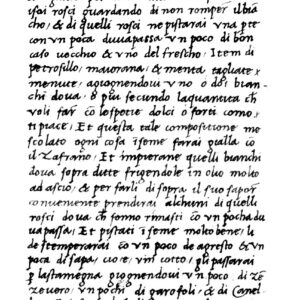 rsai rosci guardando di non romper il bia
cho, & di quelli rosci ne pistarai vna pte
con vn poco duuapassa, vn poco di bon
caso uecchio & vno del frescho, Item di
petrosillo, maiorana, & menta tagliate
menute, agiognendoui vno o doi bian,
chi doua, o piu secundo la quantita ch
voli far & le spetie dolci o forti como
ti piace, Et questa tale compositione me
scolato ogni cosa iseme farai gialla cō
il zafrano, Et impierane quelli bianchi
doua sopra dutte frigendole in olio molto
ad ascio, & per farli di sopra il suo sapor
conuenjente prendirai alihuni di quelli
rosci doua ch sonno rimasti cō vn pocha du
ua passa, Et pistati iseme molto bene, li
destemperarai cō vn poco de agresto & vn
poco di sapa, cio e, vin cotto, gli passarai
p la stamegna giognendoui vn poco di zē
zeuero, vn pochi di garofoli, & di Canel